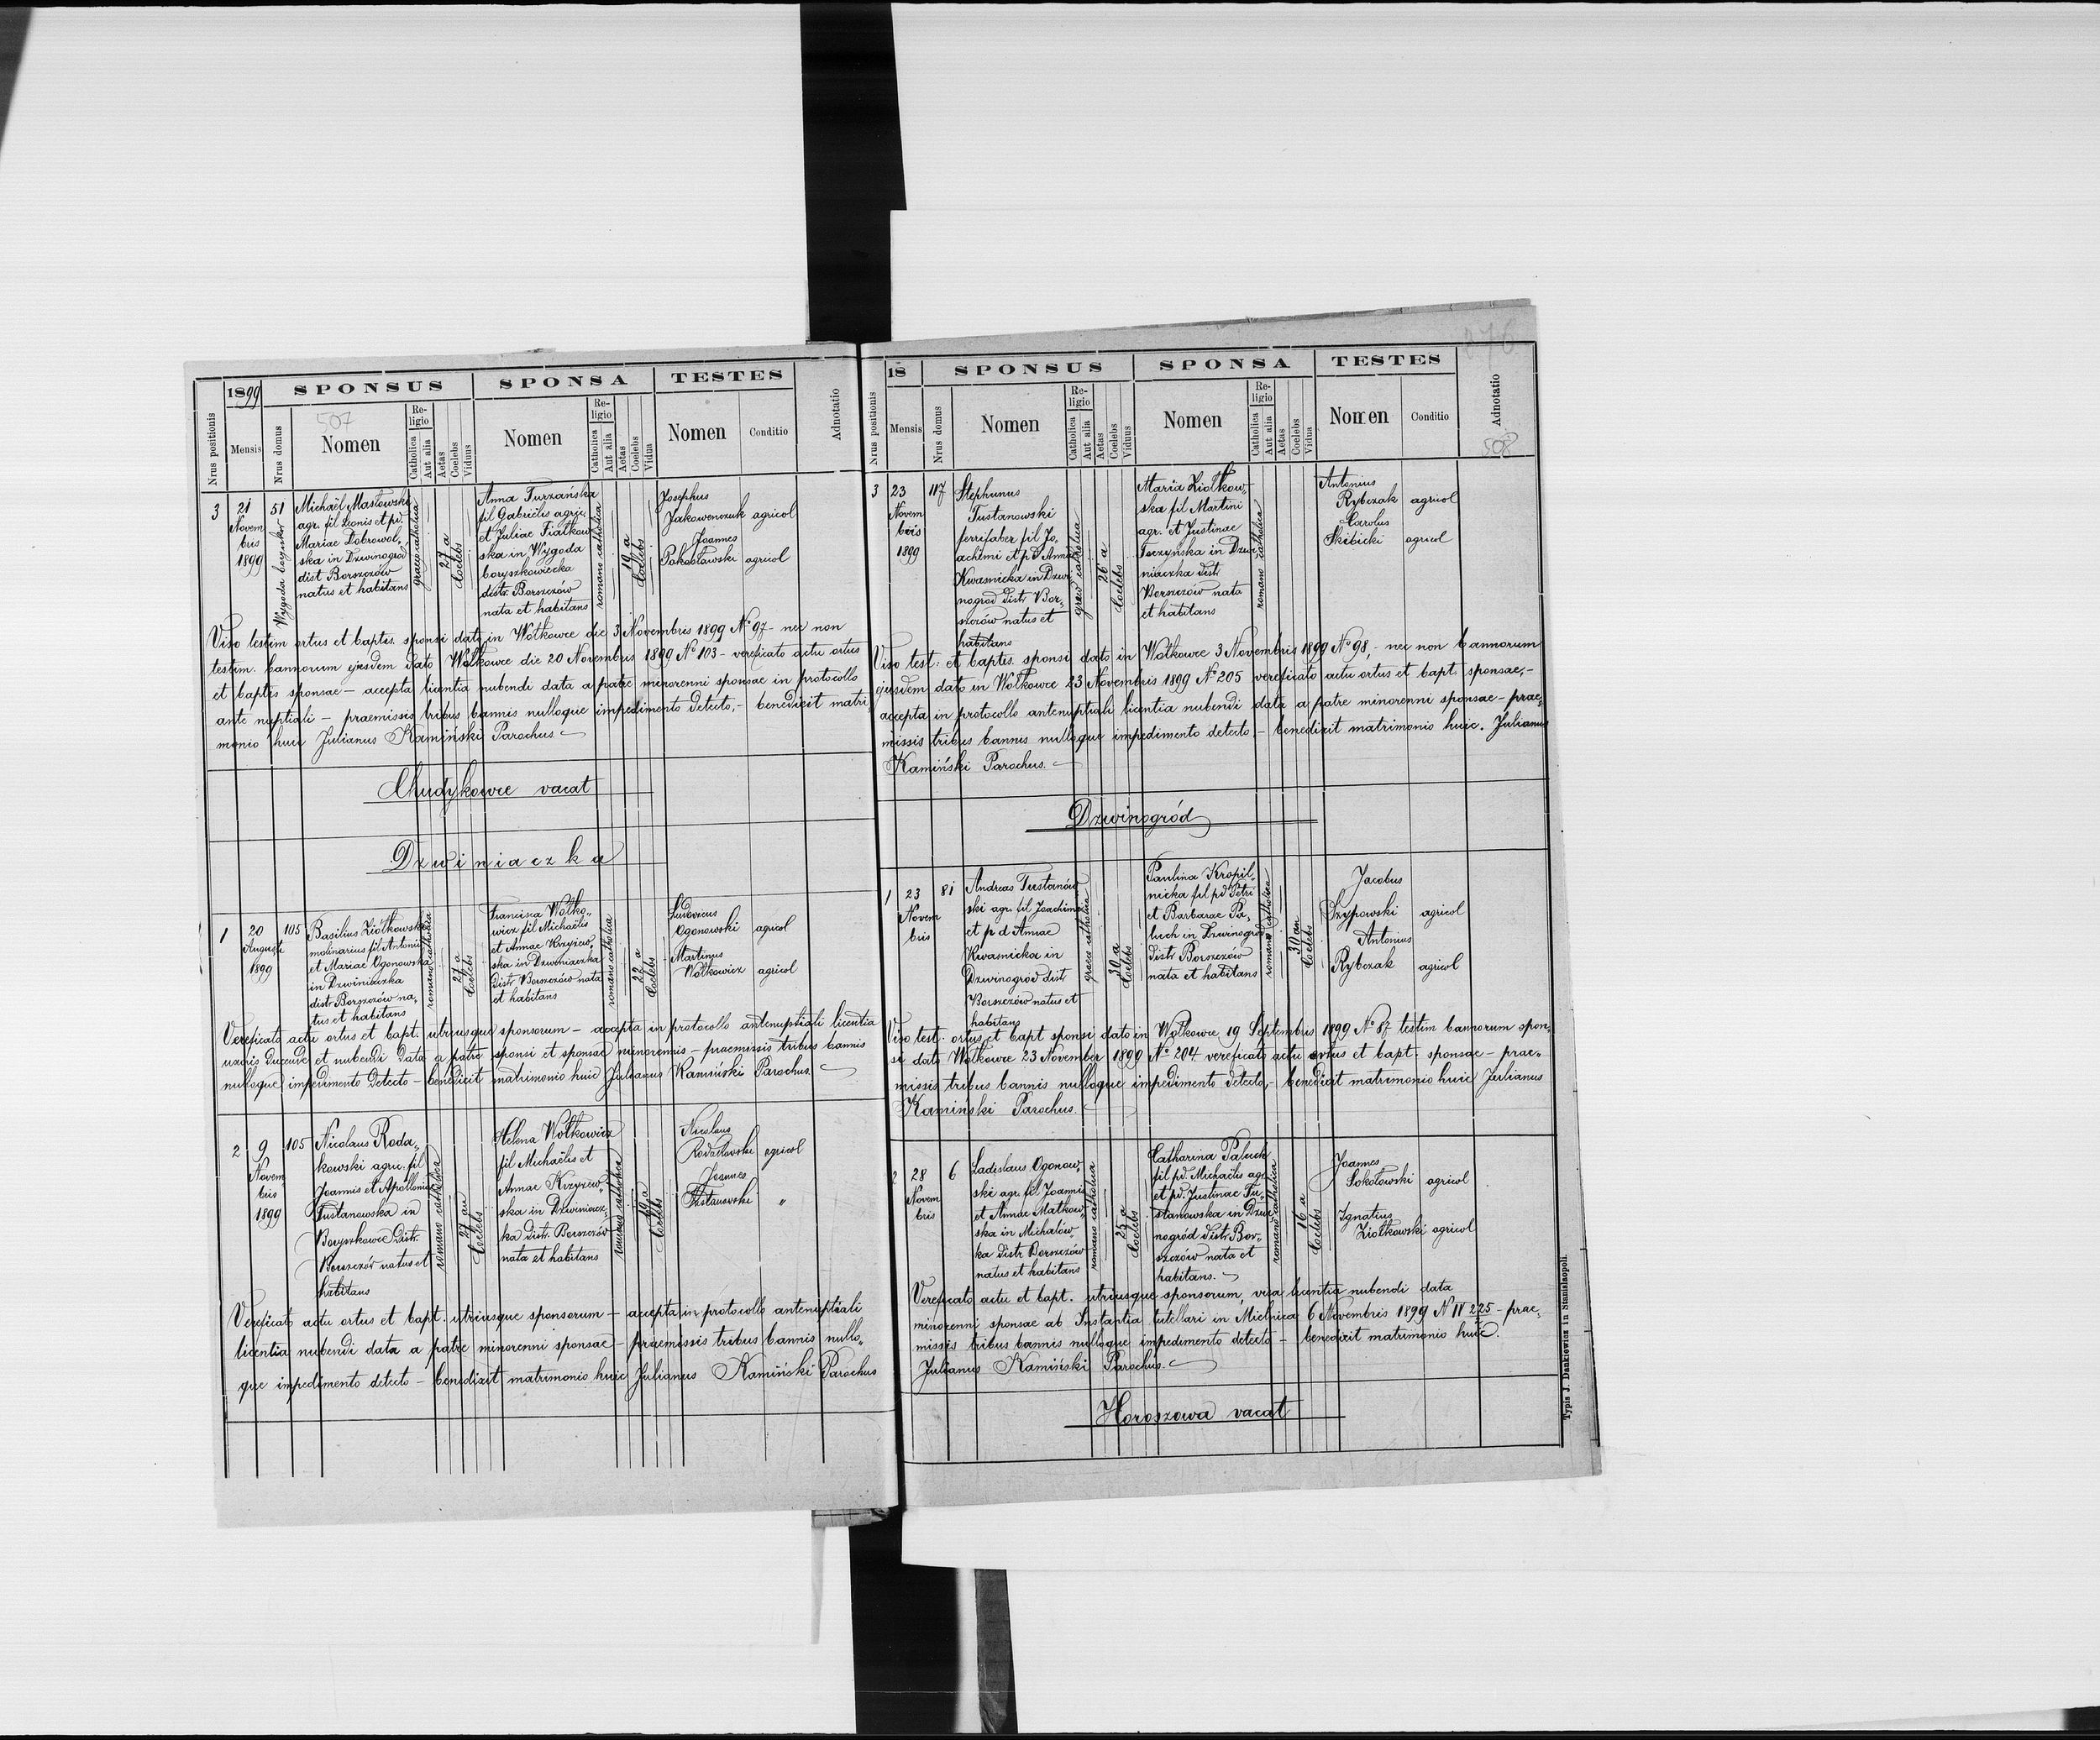 1899
SPONSUS
SPONSA
TESTES
Nrus positionis
Mensis
Nrus domus
507
Nomen
Religio
Catholica
Aut alia
Aetas
Coelebs
Viduus
Nomen
Religio
Catholica
Aut alia
Aetas
Coelebs
Vidua
Nomen
Conditio
Adnotatio
3
21
Novem
bris
1899
51
Wygoda borysków
Michaël Masłowski
agr. fil Leonis et pd.
Mariae Dobrowol„
ska in Dzwinogród
dist Borszczów
natus et habitans
graeco catholica
27 a
Coelebs
Anna Turzańska
fil Gabrielis agric
et Juliae Fiałkow
ska in Wygoda
boryszkowiecka
distr. Borszczów
nata et habitans
romano catholica
19 a
Coelebs
Josephus
Jakowenczuk agricol
Joannes
Pakosławski agricol
Viso testim ortus et baptis. sponsi dato in Wołkowce die 3 Novembris 1899 No 97 - nec non
testim. bannorum ejusdem dato Wołkowce die 20 Novembris 1899 No 103 - vereficato actu ortus
et baptis sponsae - accepta licentia nubendi data a patre minorenni sponsae in protocollo
ante nuptiali - praemissis tribus bannis nulloque impedimento detecto, - benedixit matri
monio huic Julianus Kamiński Parochus.
Chudykowce vacat
Dzwiniaczka
1
20
Augusti
1899
105
Basilius Ziółkowski
molinarius fil Antonii
et Mariae Ogonowska
in Dzwiniaczka
distr Borszczów na„
tus et habitans
romano catholica
27 a
Coelebs
Francisca Wołko„
wicz fil Michaëlis
et Annae Krzyżew„
ska in Dzwiniaczka
distr Borszczów nata
et habitans
romano catholica
22 a
Coelebs
Ludovicus
Ogonowski agricol
Martinus
Wołkowicz agricol
Vereficato actu ortus et bapt. utriusque sponsorum - accepta in protocollo antenuptiali licentia
uxoris ducendi et nubendi data a patre sponsi et sponsae minorennis - praemissis tribus bannis
nulloque impedimento detecto - benedixit matrimonio huic Julianus Kamiński Parochus.
2
9
Novem
bris
1899
105
Nicolaus Roda„
kowski agric. fil
Joannis et Apolloniae
Tustanowska in
Boryszkowce Distr.
Borszczów natus et
habitans
romano catholica
27 an
Coelebs
Helena Wołkowicz
fil Michaëlis et
Annae Krzyżew„
ska in Dzwiniacz„
ka distr. Borszczów
nata et habitans
romano catholica
19 a
Coelebs
Nicolaus
agricol
Joannes
Tustanowski „
Vereficato actu ortus et bapt. utriusque sponsorum - accepta in protocollo antenuptiali
licentia nubendi data a patre minorenni sponsae - praemissis tribus bannis nullo„
que impedimento detecto - benedixit matrimonio huic Julianus Kamiński Parochus
276
18
SPONSUS
SPONSA
TESTES
Nrus positionis
Mensis
Nrus domus
Nomen
Religio
Catholica
Aut alia
Aetas
Coelebs
Viduus
Nomen
Religio
Catholica
Aut alia
Aetas
Coelebs
Vidua
Nomen
Conditio
Adnotatio
508
3
23
Novem
bris
1899
117
Stephanus
Tustanowski
ferrifaber fil Jo„
achimi et pd Annae
Kwasnicka in Dzwi
nogród distr Bor„
szczów natus et
habitans
graeco catholica
26 a
Coelebs
Maria Ziołkow„
ska fil Martini
agr. et Justinae
Torzyńska in Dzwi
niaczka distr
Borszczów nata
et habitans
romano catholica
Antonius
Rybczak agricol
Carolus
Skibicki agricol
Viso test. et baptis. sponsi dato in Wołkowce 3 Novembris 1899 No 98, - nec non bannorum
ejusdem dato in Wołkowce 23 Novembris 1899 No 205 vereficato actu ortus et bapt sponsae, -
accepta in protocollo antenuptiali licentia nubendi data a patre minorenni sponsae - prae„
missis tribus bannis nulloque impedimento detecto, - benedixit matrimonio huic. Julianus
Kamiński Parochus.
Dzwinogród
1
23
Novem
bris
81
Andreas Tustanów
ski agr. fil Joachimi
et p d Annae
Kwasnicka in
Dzwinogród dist
Borszczów natus et
habitans
graeco catholica
30 a
Coelebs
Paulina Kropil„
nicka fil pd Petri
et Barbarae Pa„
luch in Dzwinogród
distr Borszczów
nata et habitans
romano catholica
30 an
Coelebs
Jacobus
Szypowski agricol
Antonius
Rybczak agricol
Viso test. ortus et bapt sponsi dato in Wołkowce 19 Septembris 1899 No 87 testim bannorum spon„
si dato Wołkowce 23 November 1899 No 204 vereficato actu ortus et bapt. sponsae - prae„
missis tribus bannis nulloque impedimento detecto, - benedixit matrimonio huic Julianus
Kamiński Parochus.
2
28
Novem
bris
6
Ladislaus Ogonow„
ski agr. fil Joannis
et Annae Małkow„
ska in Michałów„
ka distr Borszczów
natus et habitans
romano catholica
25 a
Coelebs
Catharina Paluch
fil pd. Michaëlis agr.
et pd. Justinae Tu„
stanowska in Dzwi
nogród distr. Bor„
szczów nata et
habitans.
romano catholica
16 a
Coelebs
Joannes
Sokołowski agricol
Ignatius
Ziołkowski agricol
Vereficato actu et bapt. utriusque sponsorum, visa licentia nubendi data
minorenni sponsae ab Instantia tutellari in Mielnica 6 Novembris 1899 N IV 225 - prae„
missis tribus bannis nulloque impedimento detecto - benedixit matrimonio huic.
Julianus Kamiński Parochus.
Horoszowa vacat
Typis J. Dankiewicz in Stanislaopoli.